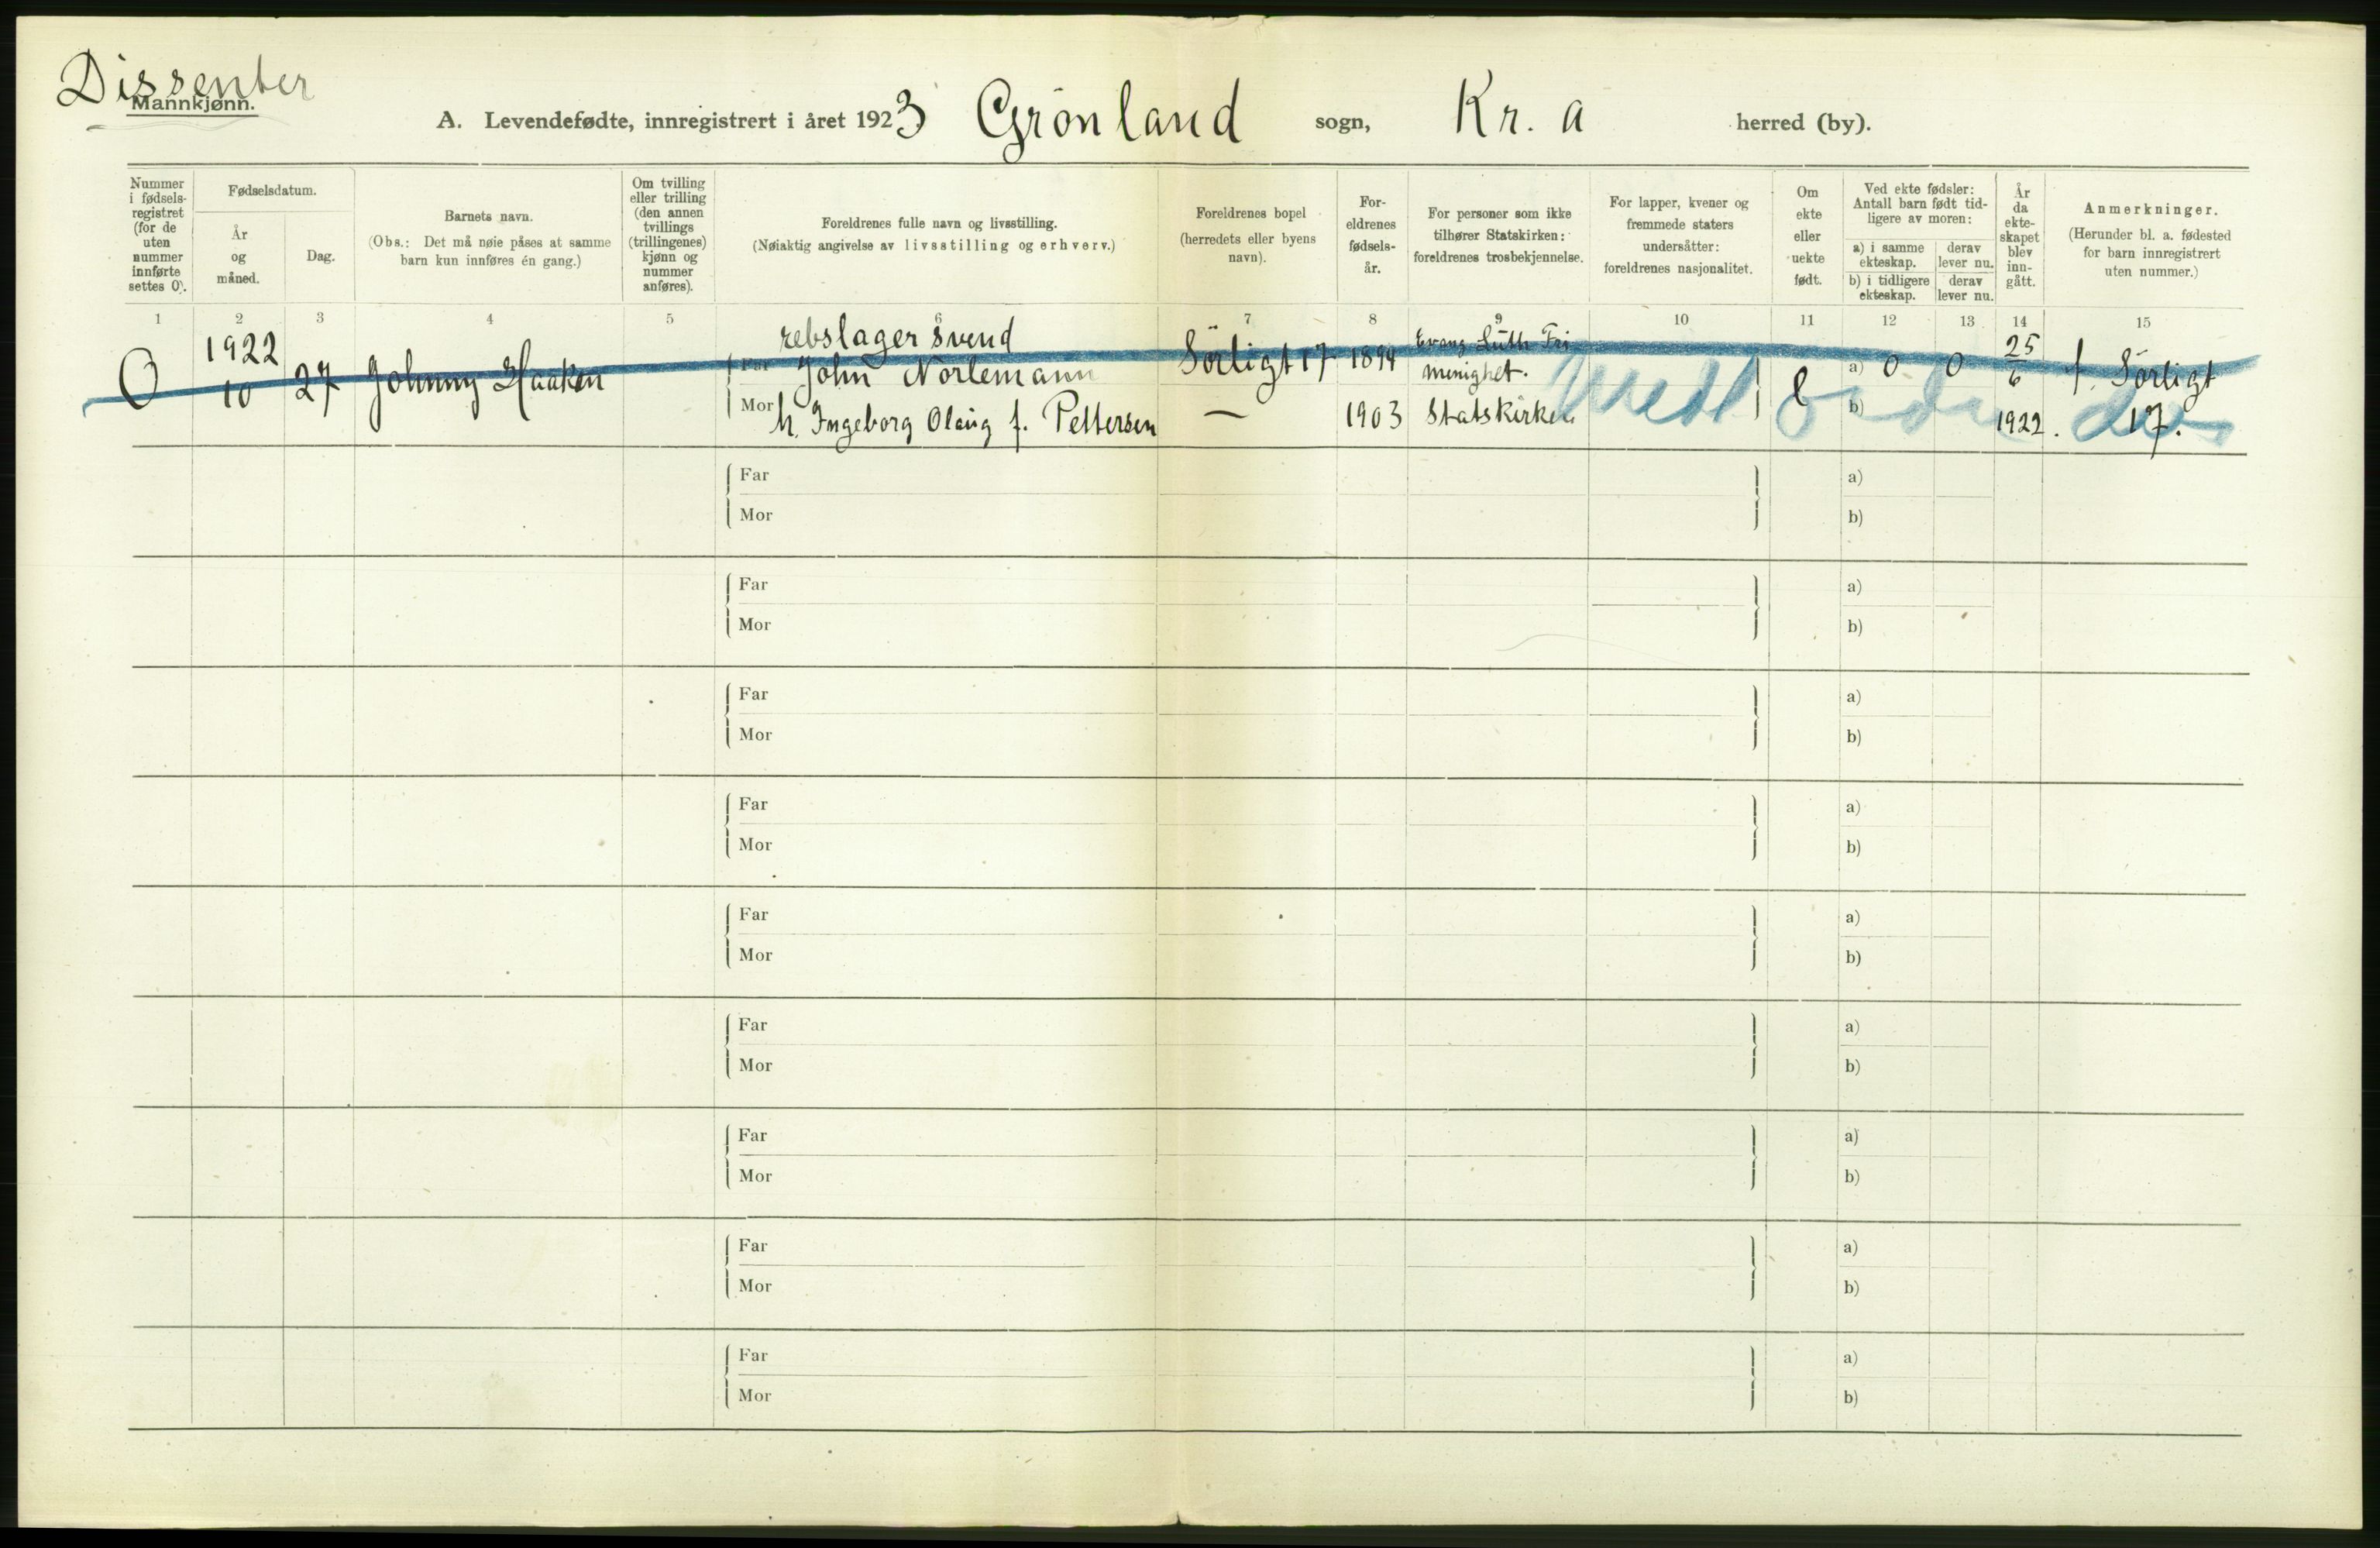 Dissenter
Mannkjønn.
A. Levendefødte, innregistrert i året 1923 Grönland sogn, Kr. a herred (by).
Nummer
i fødsels-
registret
(for de
uten
nummer
innførte
settes 0).
Fødselsdatum.
År
og
måned.
Dag.
Barnets navn.
(Obs.: Det må nøie påses at samme
barn kun innføres én gang.)
Om tvilling
eller trilling
(den annen
tvillings
(trillingenes)
kjønn og
nummer
anføres).
Foreldrenes fulle navn og livsstilling.
(Nøiaktig angivelse av livsstilling og erhverv.)
Foreldrenes bopel
(herredets eller byens
navn).
For-
eldrenes
fødsels-
år.
For personer som ikke
tilhører Statskirken:
foreldrenes trosbekjennelse.
For lapper, kvener og
fremmede staters
undersåtter:
foreldrenes nasjonalitet.
Om
ekte
eller
uekte
født.
Ved ekte fødsler:
Antall barn født tid-
ligere av moren:
a) i samme
ekteskap.
derav
lever nu.
b) i tidligere
ekteskap.
derav
lever nu.
År
da
ekte-
skapet
blev
inn-
gått.
Anmerkninger.
(Herunder bl. a. fødested
for barn innregistrert
uten nummer.)
1 2 3 4 5 6 7 8 9 10 11 12 13 14 15
0
1922
10
27
Johnny Haaken
rebslager svend
Far John Nortemann
Mor h. Ingeborg Olaug f. Pettersen
Sörligt 17
—
1894
1903
Evang Luth Fri
menighet.
Statskirken
e
a) 0 0
b)
25
6
1922.
f. Sörligt
17.
Far
Mor
a)
b)
Far
Mor
a)
b)
Far
Mor
a)
b)
Far
Mor
a)
b)
Far
Mor
a)
b)
Far
Mor
a)
b)
Far
Mor
a)
b)
Far
Mor
a)
b)
Far
Mor
a)
b)